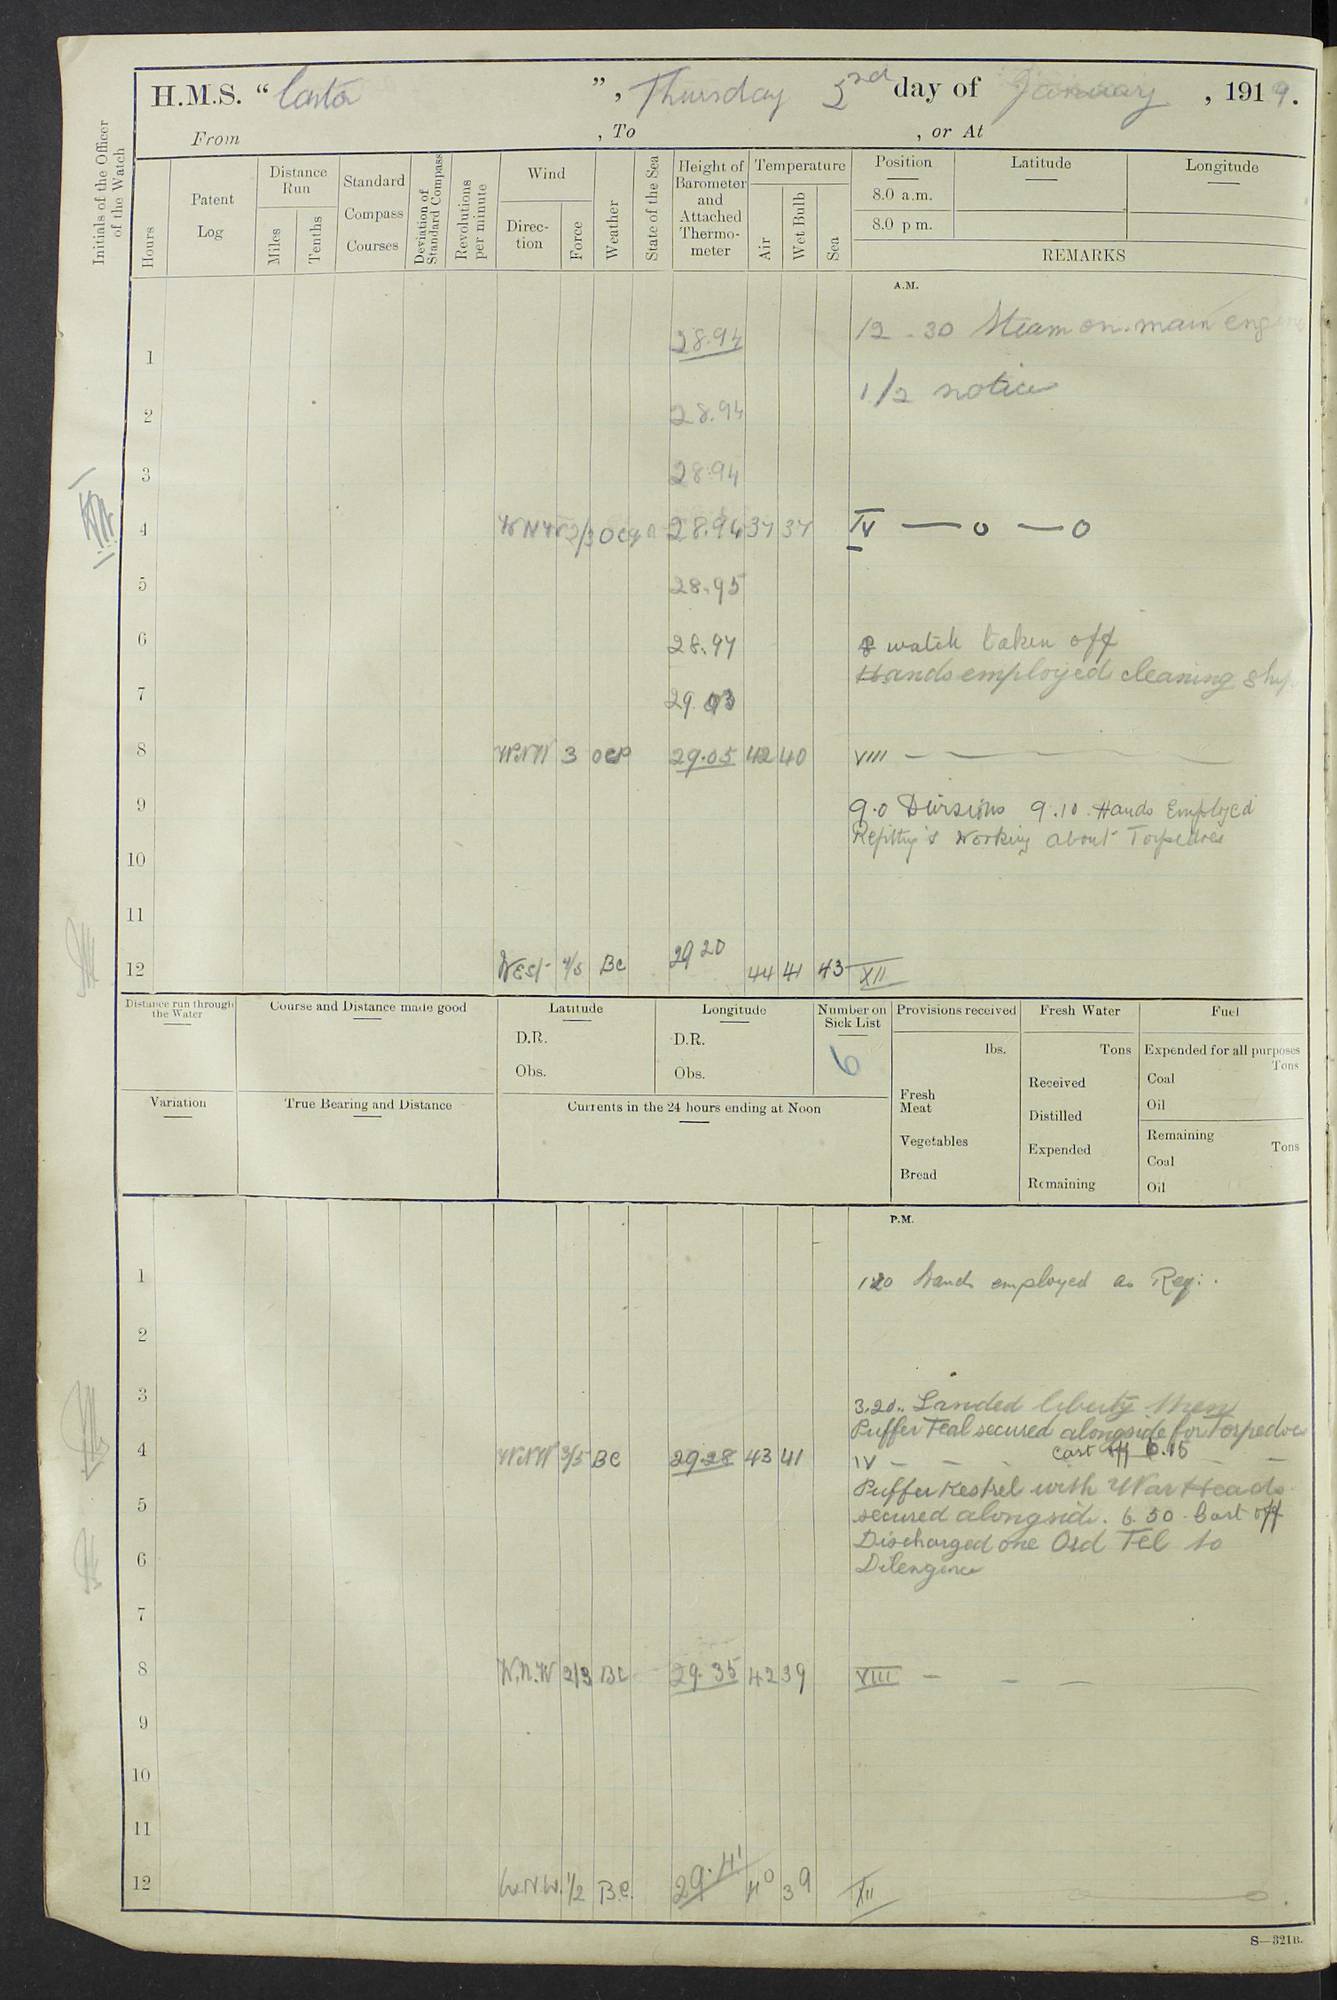 H.M.S. “Castor”, Thursday 2nd day of January, 1919.
From , To , or At
Initials of the Officer of the Watch
Hours
Patent Log
Distance Run
Miles
Tenths
Standard Compass Courses
Deviation of Standard Compass
Revolutions per minute
Wind
Direction
Force
Weather
State of the Sea
Height of Barometer and Attached Thermometer
Temperature
Air
Wet Bulb
Sea
Position
8.0 a.m.
8.0 p m.
Latitude
Longitude
REMARKS
A.M.
12 . 30 Steam on main engines
1 28.94
1/2 notice
2 28.94
3 28.94
4 WNW 2/3 28.94 37 37 IV — o — o
5 28.95
6 28.97 watch taken off
Hands employed cleaning ship
7 29.03
8 WNW 3 ocp 29.05 42 40 VIII —
9 9.0 Divisions 9.10 Hands Employed
Refitting & Working about Torpedoes
10
11
12 West 4/5 BC 29 20 44 41 43 XII
Distance run through the Water
Course and Distance made good
Latitude
D.R.
Obs.
Longitude
D.R.
Obs.
Number on Sick List
6
Provisions received
lbs.
Fresh Meat
Vegetables
Bread
Fresh Water
Tons
Received
Distilled
Expended
Remaining
Fuel
Expended for all purposes
Tons
Coal
Oil
Remaining
Tons
Coal
Oil
Variation
True Bearing and Distance
Currents in the 24 hours ending at Noon
P.M.
1 1 20 hands employed as Req:.
2
3 3.20.. Landed liberty Men
Puffer Teal secured alongside for Torpedoes
cast off 6.15
4 WNW 3/5 BC 29.28 43 41 IV – –
Puffer Kestrel with War Heads
5 secured alongside. 6 50 . Cast off
Discharged one Ord Tel to
6 Diligence
7
8 W.N.W 2/3 BC 29.35 42 39 VIII –
9
10
11
12 W.N.W. 1/2 B.C. 29.41 40 39 XII
S—321B.